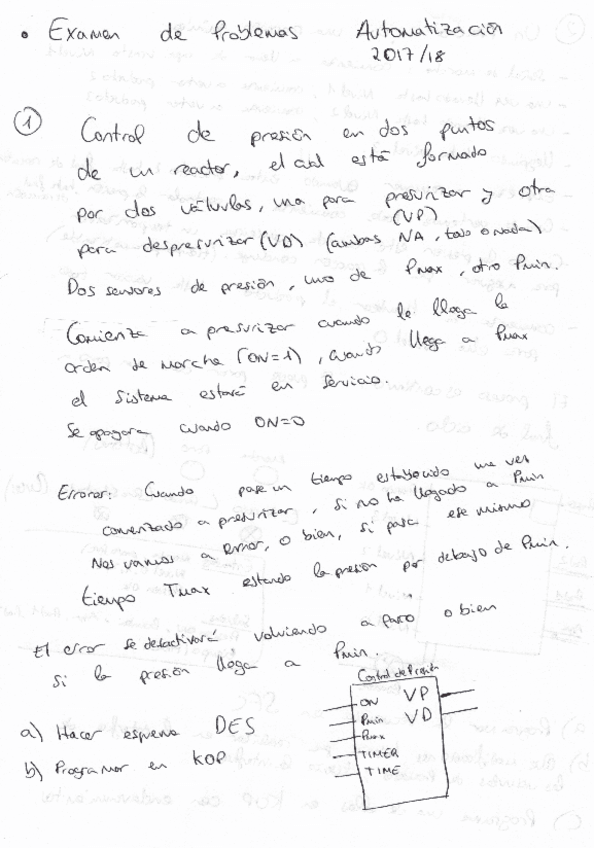 • Examen de Problemas Automatización
2017/18
① Control de presión en dos puntos
de un reactor, el cual está formado
por dos válvulas, una para presurizar y otra
(VP)
para despresurizar (VD) (ambas NA, todo o nada)
Dos sensores de presión, uno de Pmax, otro Pmin.
Comienza a presurizar cuando le llega la
orden de marcha (ON=1), cuando llega a Pmax
el sistema estará en servicio.
Se apagara cuando ON=0
Errores: Cuando pase un tiempo establecido una vez
comenzado a presurizar, si no ha llegado a Pmin
Nos vamos a Error, o bien, si pasa ese mismo
tiempo Tmax estando la presión por debajo de Pmin.
El error se desactivará volviendo a paro o bien
si la presión llega a Pmin.
a) Hacer esquema DES
b) Programar en KOP
Control de Presión
ON VP
Pmin VD
Pmax
TIMER
TIME